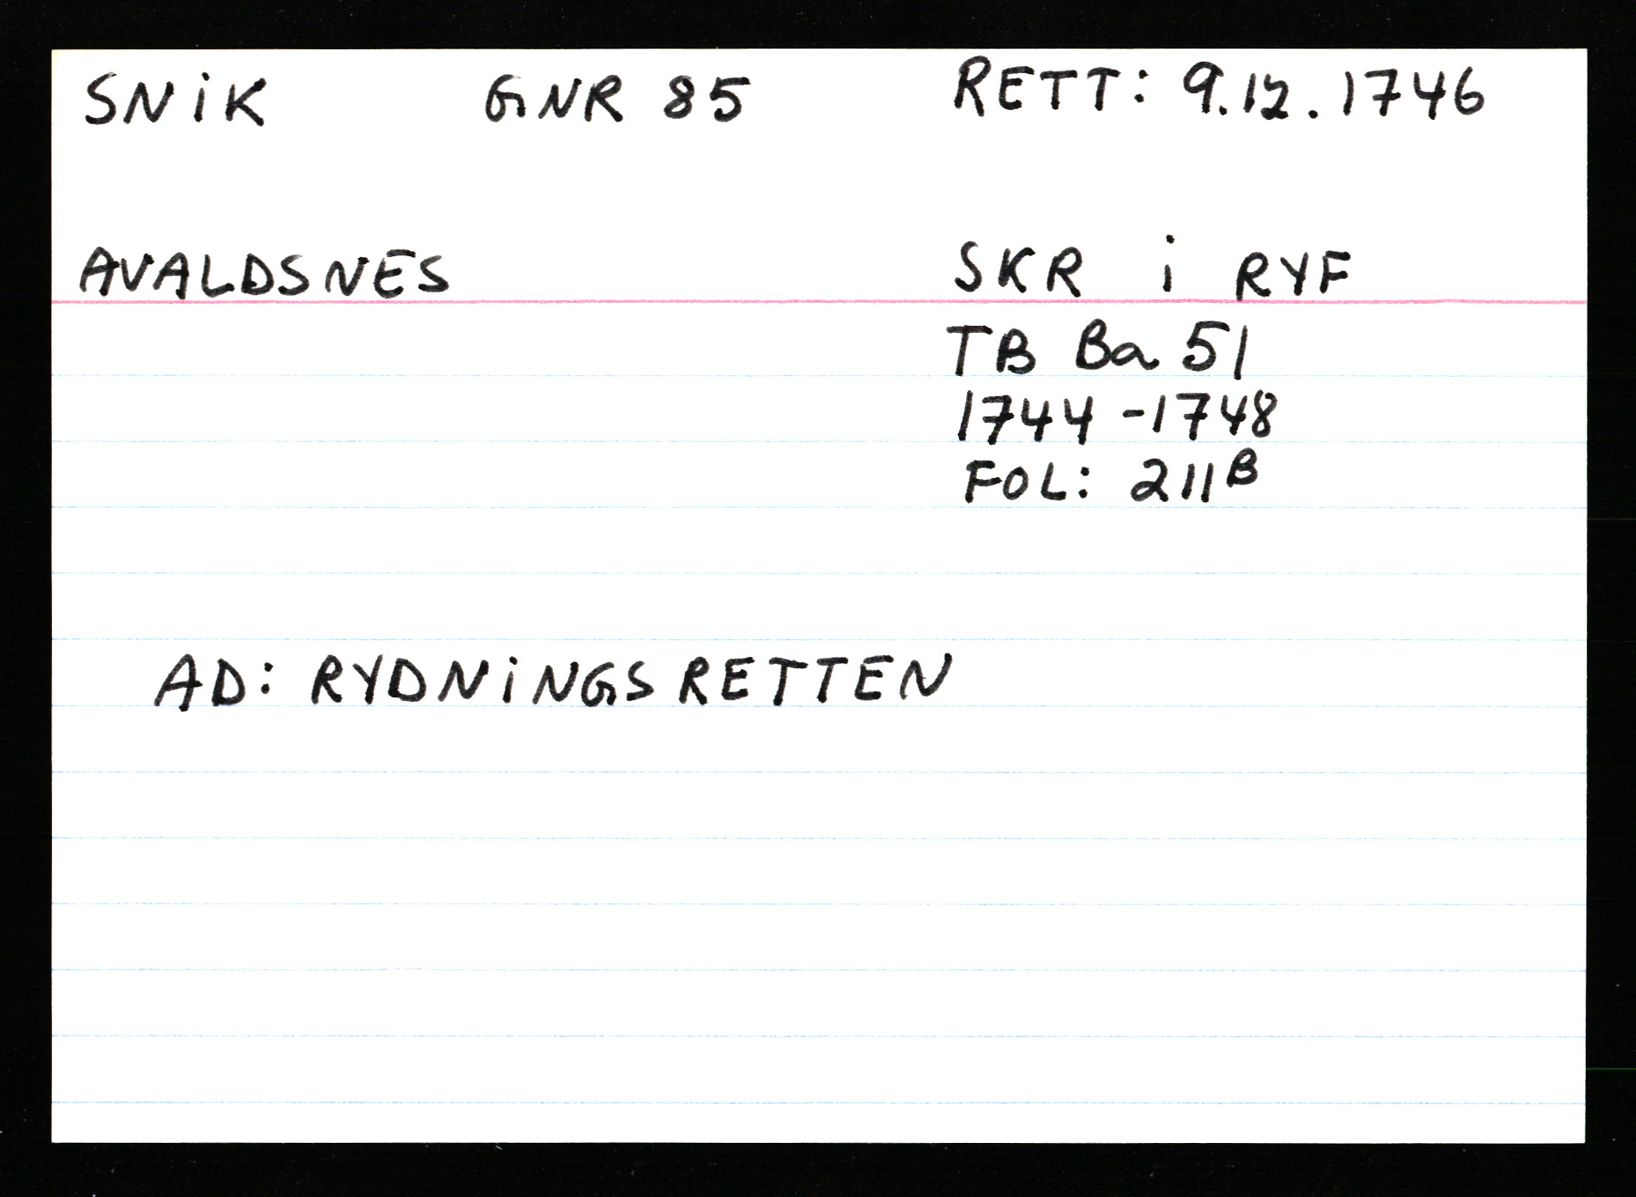 SNiK GNR 85 RETT: 9.12.1746
AVALDSNES SKR i RYF
TB Ba 51
1744-1748
FOL: 211B
AD: RYDNiNGSRETTEN